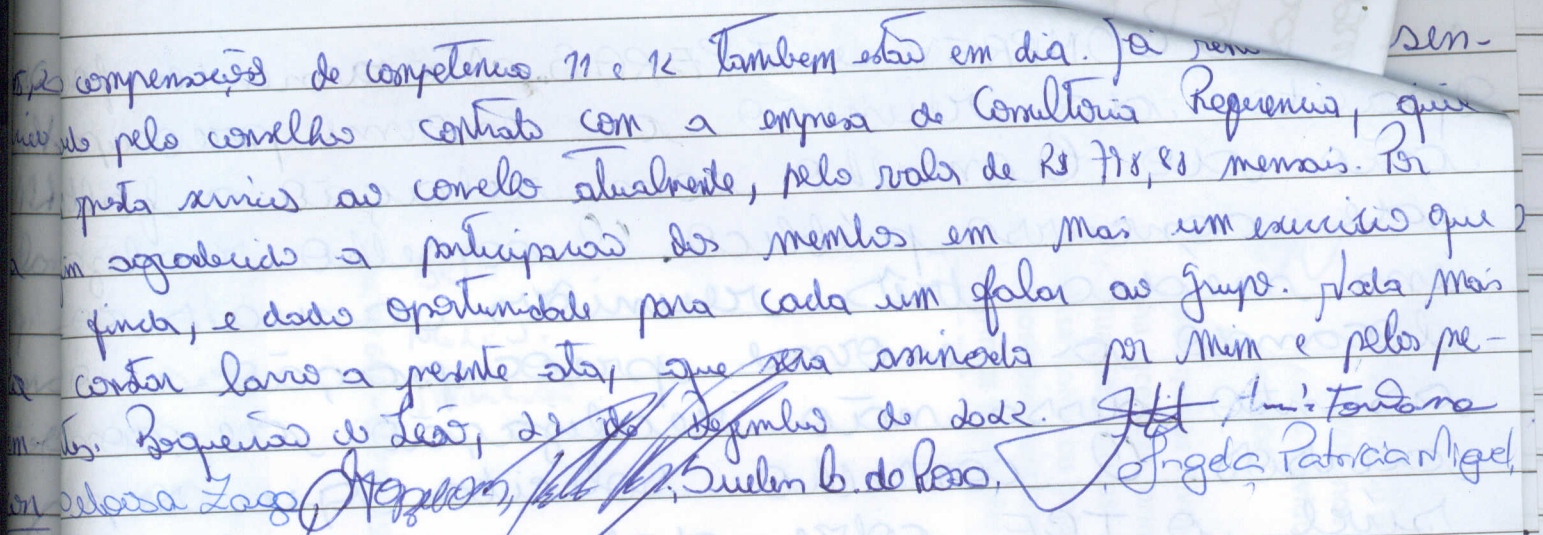 compensações de competencia 11 e 12 tambem estão em dia. Já sen-
do pelo conselho contrato com a empresa de Consultoria Referencia, que
presta serviços ao conselho atualmente, pelo valor de R$ 778,88 mensais. Por
agradecido a participação dos membros em mais um exercicio que
finda, e dado oportunidade para cada um falar ao grupo. Nada mais
a constar lavro a presente ata, que será assinada por mim e pelos pre-
tes. Boqueirão do Leão, de Dezembro de 2022. Fontana
Zago, Suelen B. do Angela Patricia Miguel,